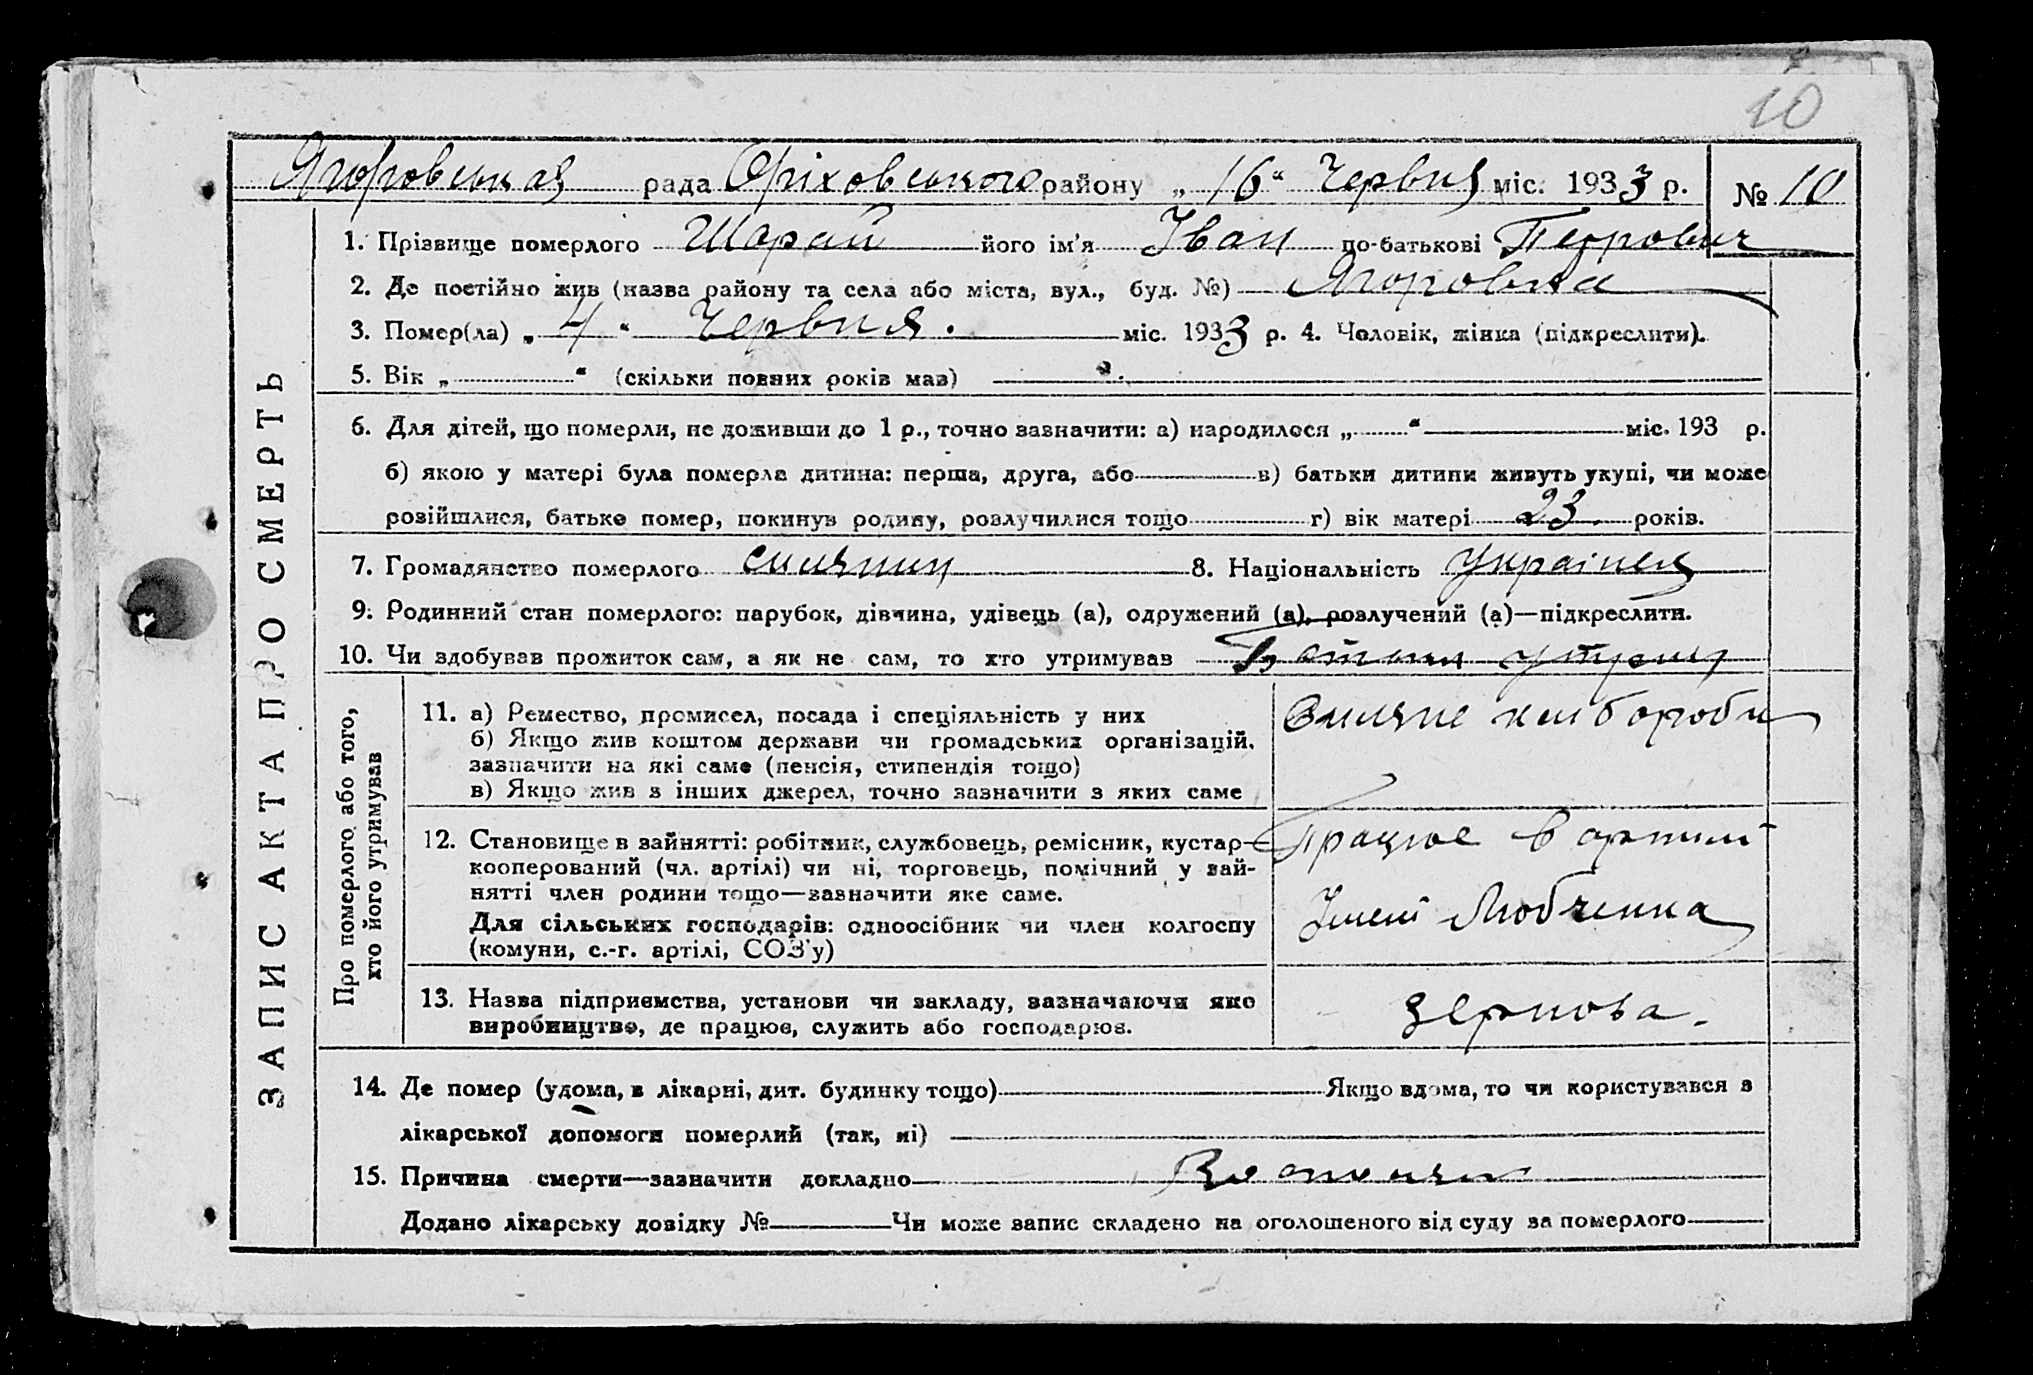 10
Ягоровськая рада Оріховського району „16“ Червня міс. 1933 р. № 10
ЗАПИС АКТА ПРО СМЕРТЬ
1. Прізвище померлого Шарай його ім'я Іван по-батькові Петрович
2. Де постійно жив (назва району та села або міста, вул., буд. №) Ягоровка
3. Помер(ла) „4“ Червня. міс. 1933 р. 4. Чоловік, жінка (підкреслити).
5. Вік „ “ (скільки повних років мав)
6. Для дітей, що померли, не доживши до 1 р., точно зазначити: а) народилося „ “ міс. 193 р.
б) якою у матері була померла дитина: перша, друга, або в) батьки дитини живуть укупі, чи може
розійшлися, батько помер, покинув родину, розлучилися тощо г) вік матері 23 років.
7. Громадянство померлого 8. Національність
9. Родинний стан померлого: парубок, дівчина, удівець (а), одружений (а), розлучений (а)—підкреслити.
10. Чи здобував прожиток сам, а як не сам, то хто утримував
Про померлого або того,
хто його утримував
11. а) Ремество, промисел, посада і спеціяльність у них
б) Якщо жив коштом держави чи громадських організацій,
зазначити на які саме (пенсія, стипендія тощо)
в) Якщо жив з інших джерел, точно зазначити з яких саме
12. Становище в зайнятті: робітник, службовець, ремісник, кустар-
кооперований (чл. артілі) чи ні, торговець, помічний у зай-
нятті член родини тощо—зазначити яке саме.
Для сільських господарів: одноосібник чи член колгоспу
(комуни, с.-г. артілі, СОЗ'у)
Працює в артилі
Імені Любченка
13. Назва підприємства, установи чи закладу, зазначаючи яке
виробництво, де працює, служить або господарює.
зернова.
14. Де помер (удома, в лікарні, дит. будинку тощо) Якщо вдома, то чи користувався з
лікарської допомоги померлий (так, ні)
15. Причина смерти—зазначити докладно
Додано лікарську довідку № Чи може запис складено на оголошеного від суду за померлого